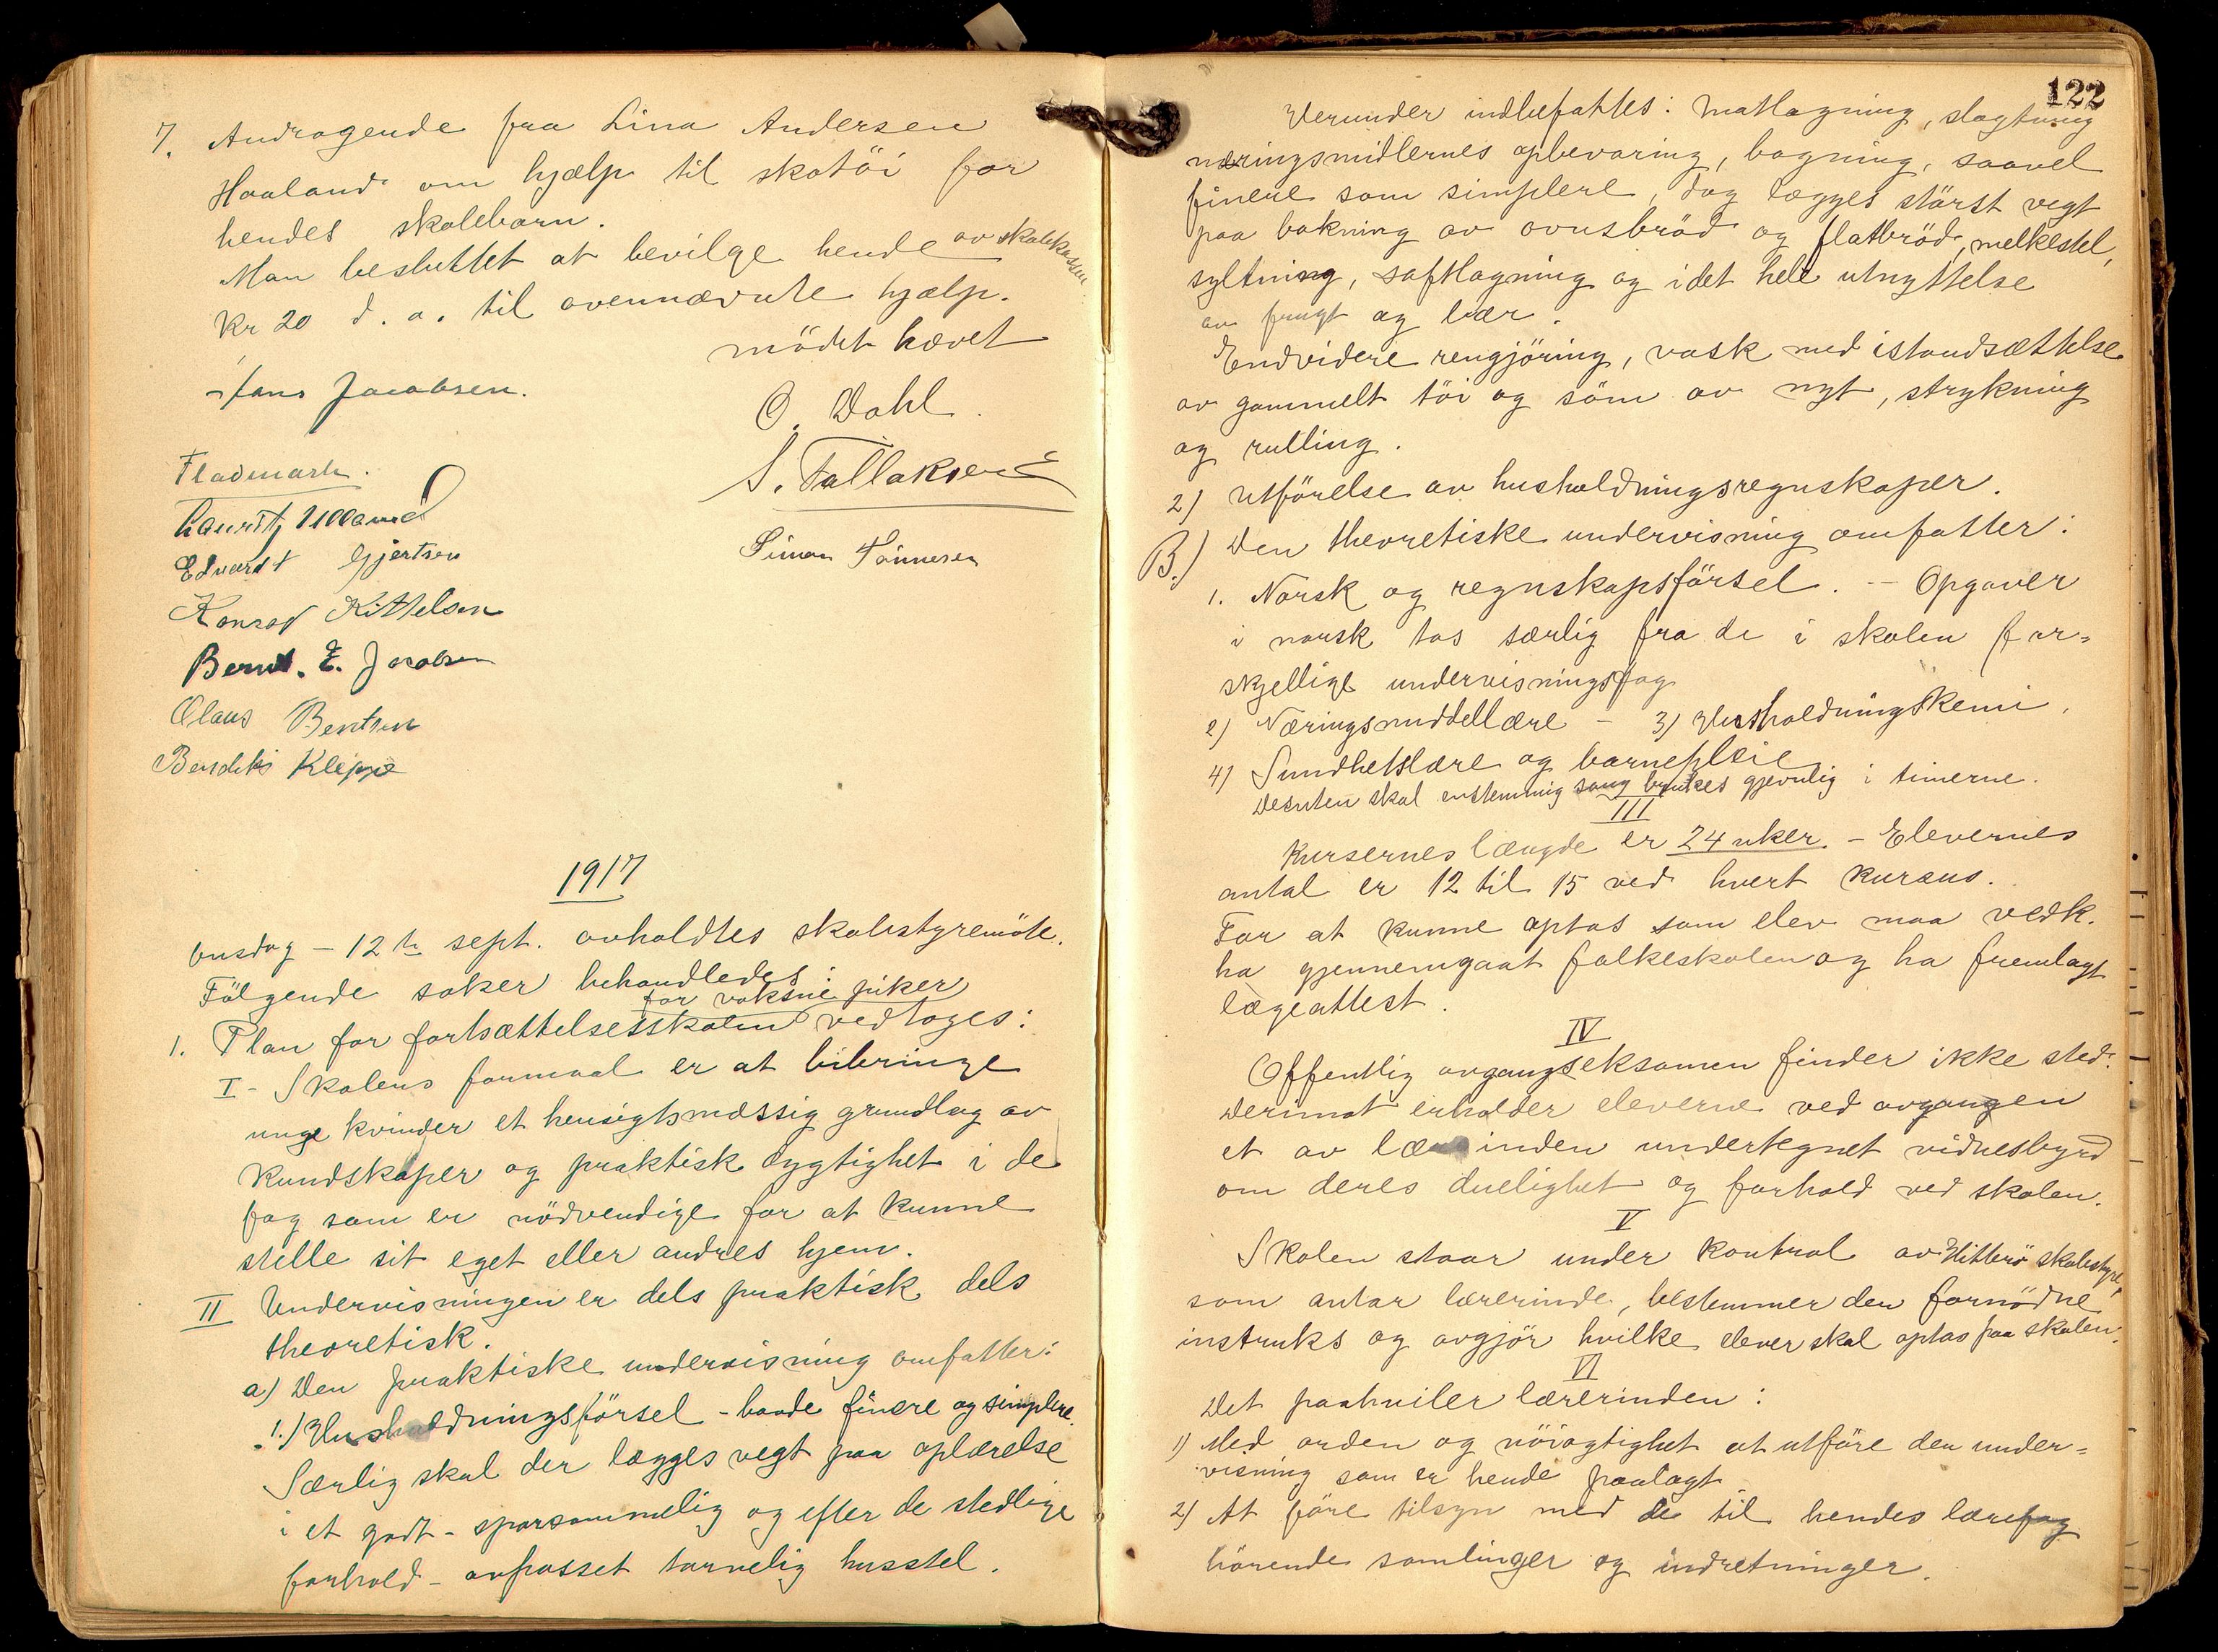 7. Andragende fra Lina Andersen
Haaland om hjælp til skotöi for
hendes skolebarn.
Man besluttet at bevilge hende av skolekassen
Kr 20 d. a. til ovennævnte hjælp.
mödet hævet
Hans Jacobsen.
O. Dahl.
S. Tallaksen
Simon Tönnesen
Fladmark.
Lauritz Ulland
Edvardt Gjertsen
Konrad Kittelsen
Bernt. E. Jacobsen
Olaus Bentsen
Bendiks Kleppe
1917
Onsdag - 12te sept. avholdtes skolestyremöte.
Fölgende saker behandledes:
for voksne piker
1. Plan for fortsættelsesskolen vedtoges:
I - Skolens formaal er at bibringe
unge kvinder et hensigtsmæssig grundlag av
kundskaper og praktisk dygtighet i de
fag som er nödvendige for at kunne
stelle sit eget eller andres hjem.
II Undervisningen er dels praktisk dels
theoretisk.
a) Den praktiske undervisning omfatter:
1.) Husholdningsförsel - baade finere og simplere.
Særlig skal der lægges vegt paa oplærelse
i et godt - sparsommelig og efter de stedlige
forhold - avpasset tarvelig husstel.
122
Herunder indbefattes: Matlagning, slagtning
næringsmidlernes opbevaring, bagning, saavel
finere som simplere, dog lægges störst vegt
paa bakning av ovnsbröd og flatbröd, melkestel,
syltning, saftlagning og i det hele utnyttelse
av frugt og bær.
Endvidere rengjöring, vask med istandsættelse
av gammelt töi og söm av nyt, strykning
og rulling.
2) Utförelse av husholdningsregnskaper.
B.) Den theoretiske undervisning omfatter:
1. Norsk og regnskapsförsel. - Opgaver
i norsk tas særlig fra de i skolen for-
skjellige undervisningsfag
2) Næringsmiddellære - 3) Husholdningskemi.
4) Sundhetslære og barnepleie
Desuten skal enstemmig sang brukes gjevnlig i timerne.
III
Kursernes længde er 24 uker. - Elevernes
antal er 12 til 15 ved hvert kursus.
For at kunne optas som elev maa vedk.
ha gjennemgaat folkeskolen og ha fremlagt
lægeattest.
IV
Offentlig avgangseksamen finder ikke sted.
Derimot erholder eleverne ved avgangen
et av lærerinden undertegnet vidnesbyrd
om deres duelighet og forhold ved skolen.
V
Skolen staar under kontrol av Hitterö skolestyre,
som antar lærerinde, bestemmer den fornödne
instruks og avgjör hvilke elever skal optas paa skolen.
VI
Det paahviler lærerinden:
1) Med orden og nöiagtighet at utföre den under-
visning som er hende paalagt
2) At före tilsyn med de til hendes lærefag
hörende samlinger og indretninger.